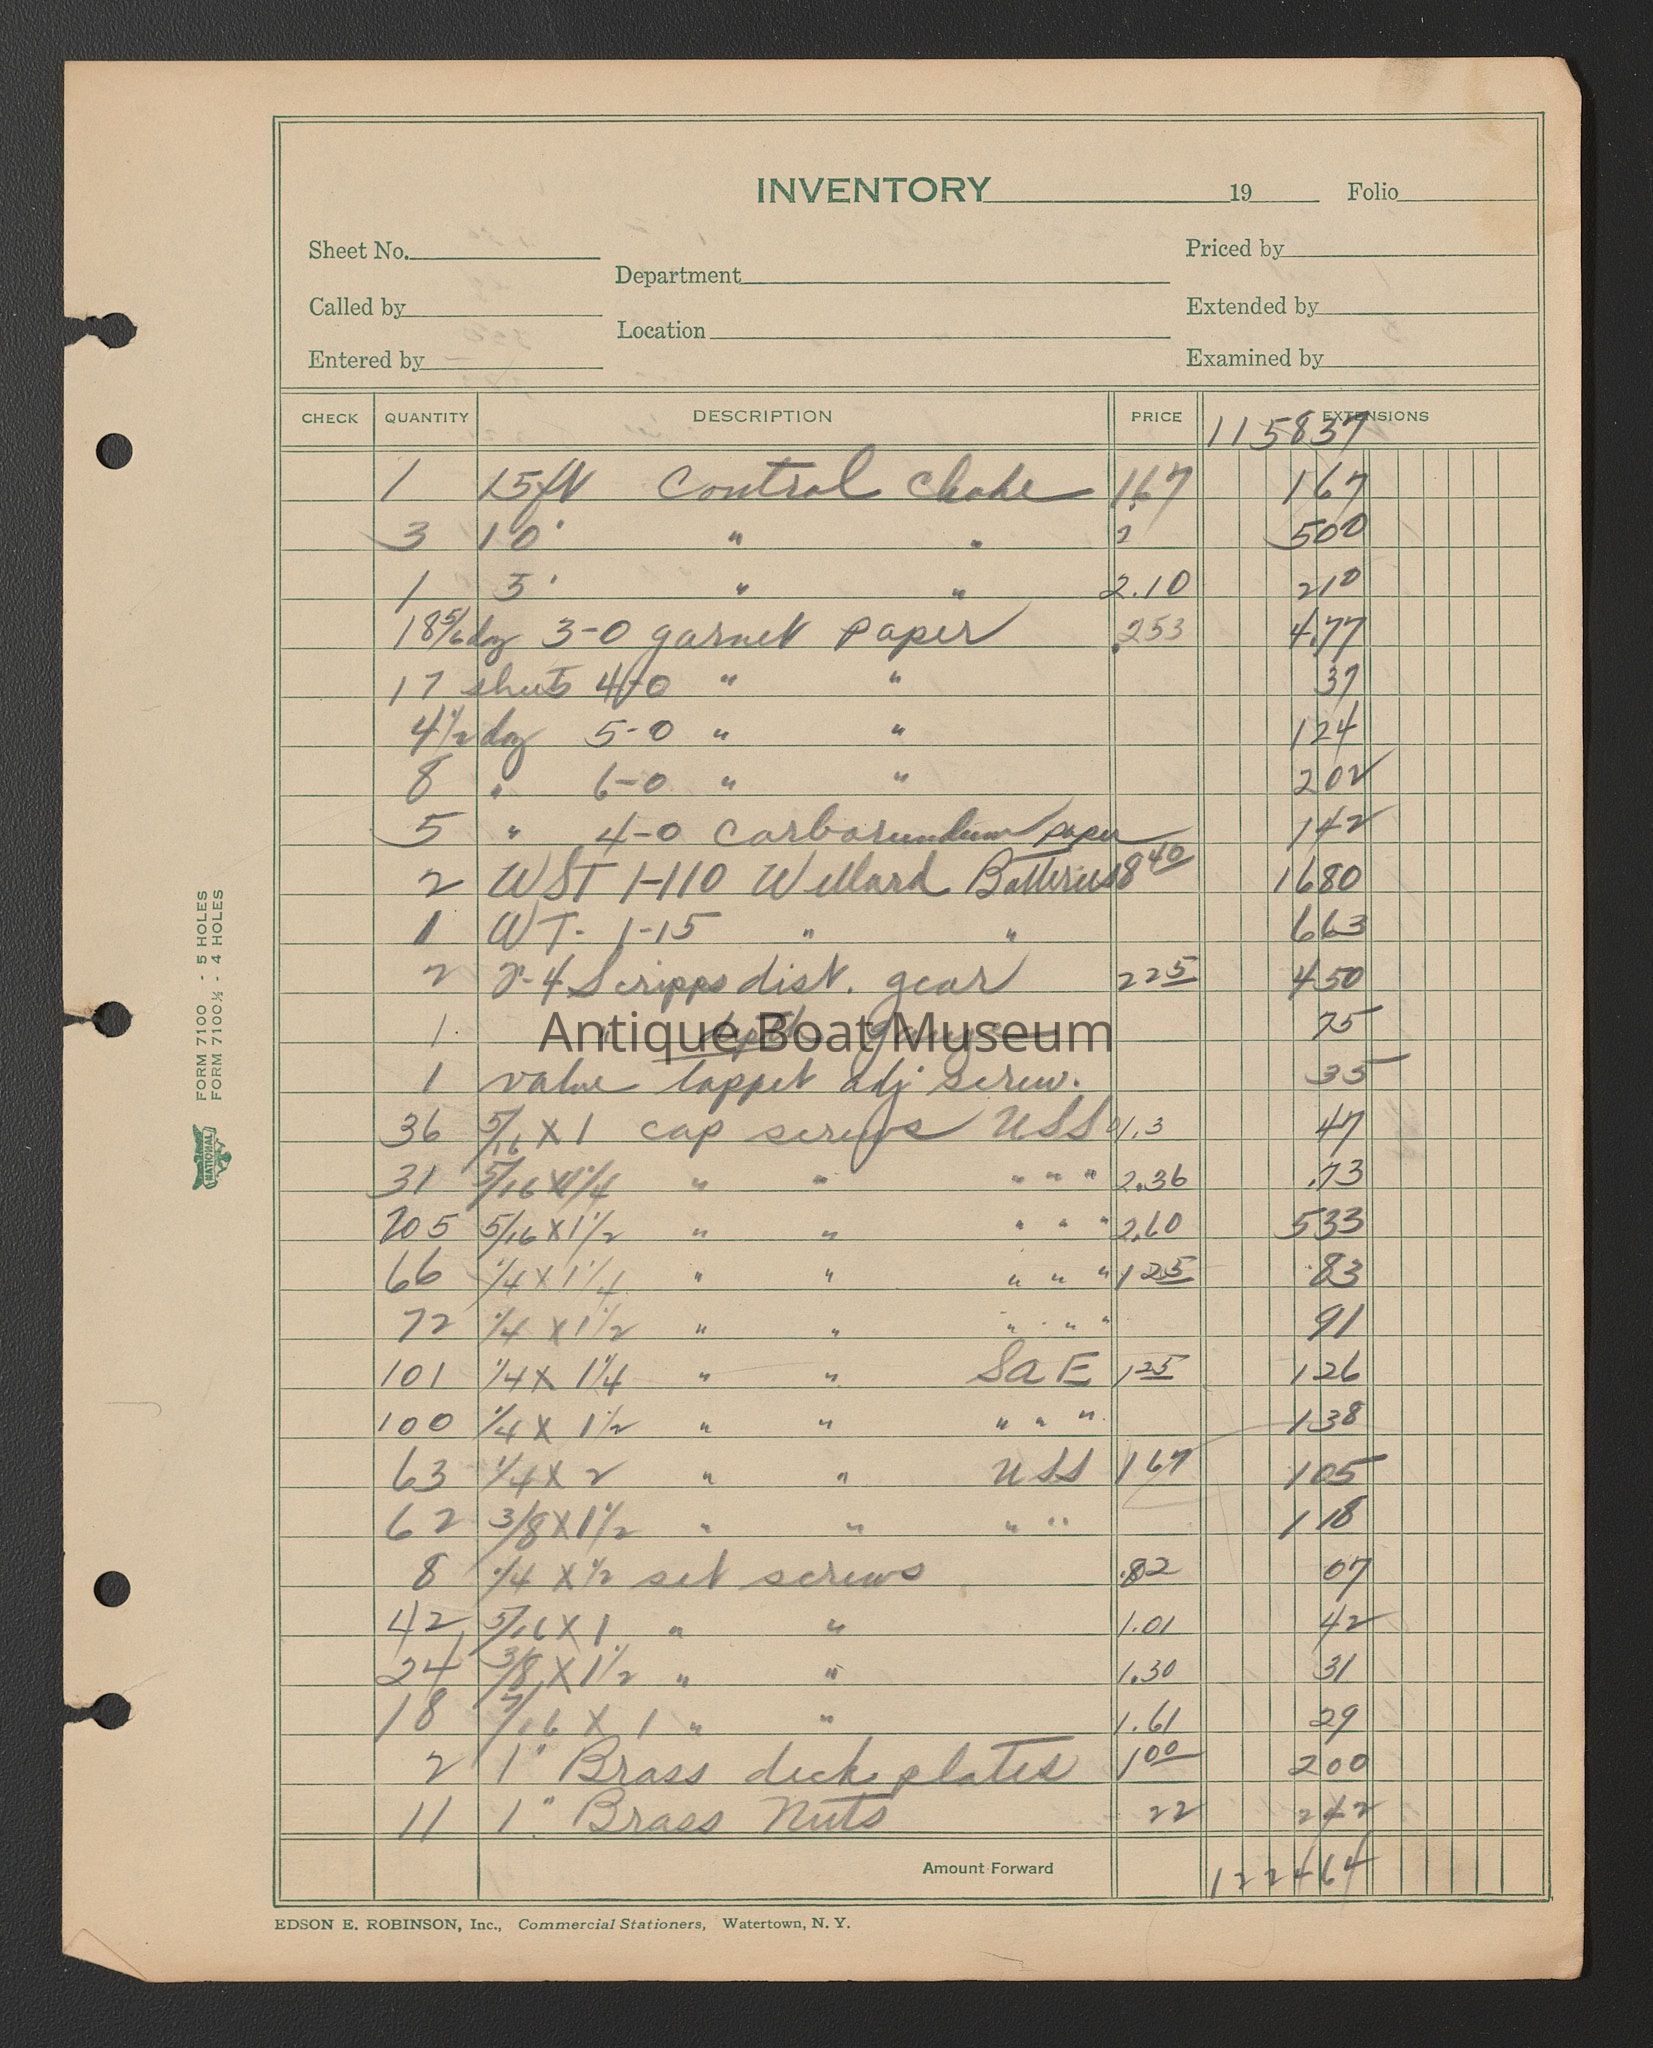 INVENTORY 19 Folio
Sheet No. Priced by
Department
Called by Extended by
Location
Entered by Examined by
CHECK QUANTITY DESCRIPTION PRICE EXTENSIONS
115837
1 15ft Control Choke 1.67 167
3 10' " " 2 500
1 5' " " 2.10 210
18 5/6 doz 3-0 garnet paper .253 4.77
17 shets 4-0 " " 37
4 1/2 doz 5-0 " " 124
8 " 6-0 " " 202
5 " 4-0 Carborundum paper 142
2 WST 1-110 Willard Batteries 8 40 1680
1 WT- 1-15 " " 663
2 F-4 Scripps dist. gear 2 25 450
1 " 75
Antique Boat Museum
1 valve tappet adj screw. 35
36 5/16 X 1 cap screws USS 1.3 47
31 5/16 X 1 1/4 " " " " " 2.36 .73
205 5/16 X 1 1/2 " " " " " 2.60 533
66 1/4 X 1 1/4 " " " " " 1 25 .83
72 1/4 X 1 1/2 " " " " " 91
101 1/4 X 1 1/4 " " SAE 1 25 126
100 1/4 X 1 1/2 " " " " " 138
63 1/4 X 2 " " USS 1 67 105
62 3/8 X 1 1/2 " " " " 118
8 1/4 X 1/2 set screws .82 07
42 5/16 X 1 " " 1.01 42
24 3/8 X 1 1/2 " " 1.30 31
18 7/16 X 1 " " 1.61 29
2 1" Brass deck plates 1 00 200
11 1" Brass Nuts 22 242
Amount Forward 122464
EDSON E. ROBINSON, Inc., Commercial Stationers, Watertown, N. Y.
FORM 7100 - 5 HOLES
FORM 7100½ - 4 HOLES
NATIONAL